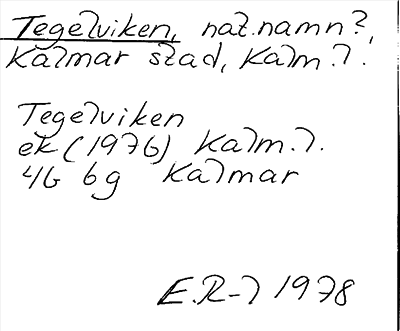 Tegelviken, nat.namn?,
Kalmar stad, Kalm.l.
Tegelviken
ek (1976) Kalm.l.
4G 6g Kalmar
E.R-l 1978